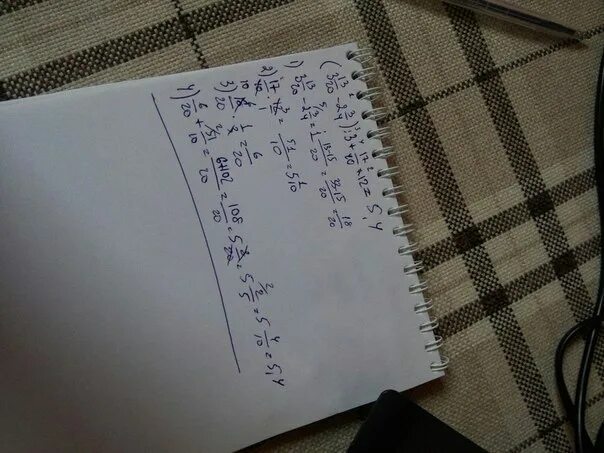 (3 13/20 - 2 3/4) : 3 + 17/40 × 12 = 5,4
1) 3 13/20 - 2 3/4 = 1 13-15/20 = 33-15/20 = 18/20
2) 17/40 · 12 = 51/10 = 5 1/10
3) 18/20 : 3 = 6/20
4) 6/20 + 51/10 = 6+102/20 = 108/20 = 5 8/20 = 5 2/5 = 5 4/10 = 5,4